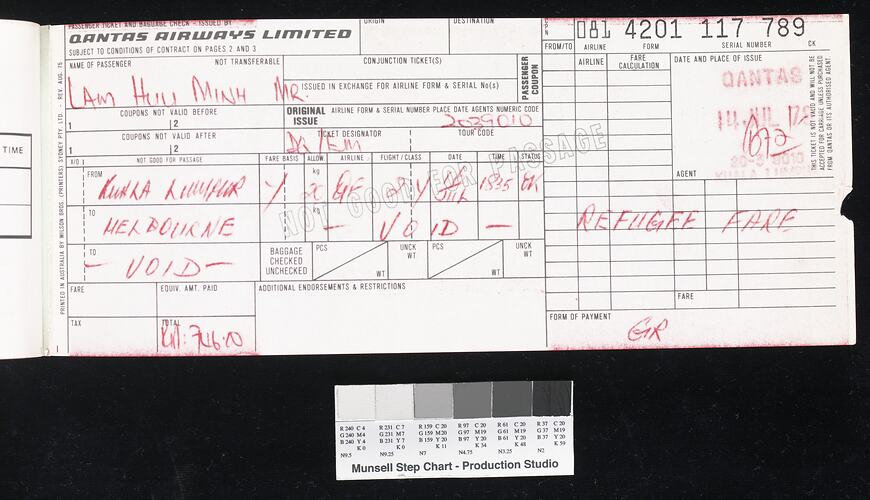 PASSENGER TICKET AND BAGGAGE CHECK - ISSUED BY
QANTAS AIRWAYS LIMITED
SUBJECT TO CONDITIONS OF CONTRACT ON PAGES 2 AND 3
ORIGIN
DESTINATION
081 4201 117 789
FROM/TO AIRLINE FORM SERIAL NUMBER CK
NAME OF PASSENGER NOT TRANSFERABLE
LAM HUU MINH MR.
CONJUNCTION TICKET(S)
PASSENGER COUPON
ISSUED IN EXCHANGE FOR AIRLINE FORM & SERIAL No(s)
AIRLINE
FARE CALCULATION
DATE AND PLACE OF ISSUE
QANTAS
THIS TICKET IS NOT VALID AND WILL NOT BE ACCEPTED FOR CARRIAGE UNLESS PURCHASED FROM QANTAS OR ITS AUTHORISED AGENT.
COUPONS NOT VALID BEFORE
1 2
ORIGINAL ISSUE
AIRLINE FORM & SERIAL NUMBER PLACE DATE AGENTS NUMERIC CODE
2029010
COUPONS NOT VALID AFTER
1 2
TICKET DESIGNATOR
TOUR CODE
X/O NOT GOOD FOR PASSAGE FARE BASIS ALLOW AIRLINE FLIGHT/CLASS DATE TIME STATUS
AGENT
FROM
KUALA LUMPUR Y kg QF Y 1835 OK
NOT GOOD FOR PASSAGE
TO
MELBOURNE kg - VOID -
REFUGEE FARE
TO
- VOID -
BAGGAGE CHECKED UNCHECKED
PCS WT UNCK WT PCS WT UNCK WT
FARE
EQUIV. AMT. PAID
ADDITIONAL ENDORSEMENTS & RESTRICTIONS
FARE
TAX
TOTAL
FORM OF PAYMENT
GR
PRINTED IN AUSTRALIA BY WILSON BROS. (PRINTERS) SYDNEY PTY. LTD. - REV. AUG. 75
TIME
R 240 C 4 R 231 C 7 R 159 C 20 R 97 C 20 R 61 C 20 R 37 C 20
G 240 M4 G 231 M7 G 159 M20 G 97 M19 G 61 M19 G 37 M19
B 240 Y 4 B 231 Y 7 B 159 Y 20 B 97 Y 20 B 61 Y 20 B 37 Y 20
K 0 K 0 K 11 K 34 K 48 K 59
N9.5 N9.25 N7 N4.75 N3.25 N2
Munsell Step Chart - Production Studio